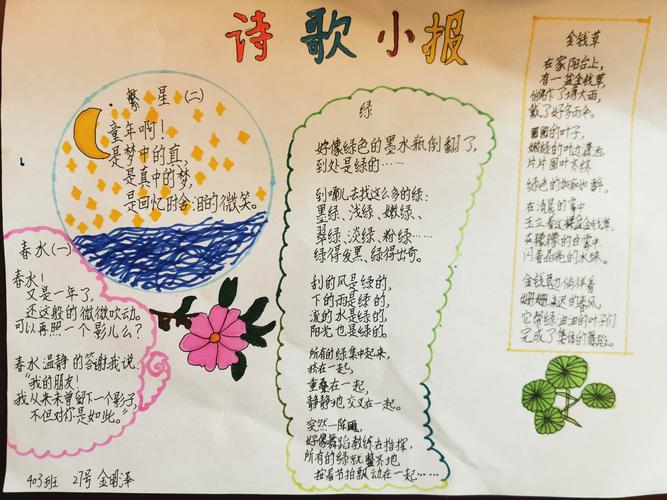 诗歌小报
繁星(二)
童年啊!
是梦中的真,
是真中的梦,
是回忆时含泪的微笑。
春水(一)
春水!
又是一年了,
还这般的微微吹动。
可以再照一个影儿么?
春水温静的答谢我说:
“我的朋友!
我从来未曾留下一个影子,
不但对你是如此。”
403班 27号 金明泽
绿
好像绿色的墨水瓶倒翻了,
到处是绿的……
到哪儿去找这么多的绿:
墨绿、浅绿、嫩绿、
翠绿、淡绿、粉绿……
绿得发黑、绿得出奇。
刮的风是绿的,
下的雨是绿的,
流的水是绿的,
阳光也是绿的。
所有的绿集中起来,
挤在一起,
重叠在一起,
静静地交叉在一起。
突然一阵风,
好像舞蹈教练在指挥,
所有的绿就整齐地
按着节拍飘动在一起……
金钱草
在家阳台上,
有一盆金钱草,
圆圆的叶子,
片片圆叶齐绿
在清晨的雾中
闪着晶亮的水珠。
金钱草
姗姗来迟的春风,
它帮绿油油的叶子们
完成了集体的舞蹈。